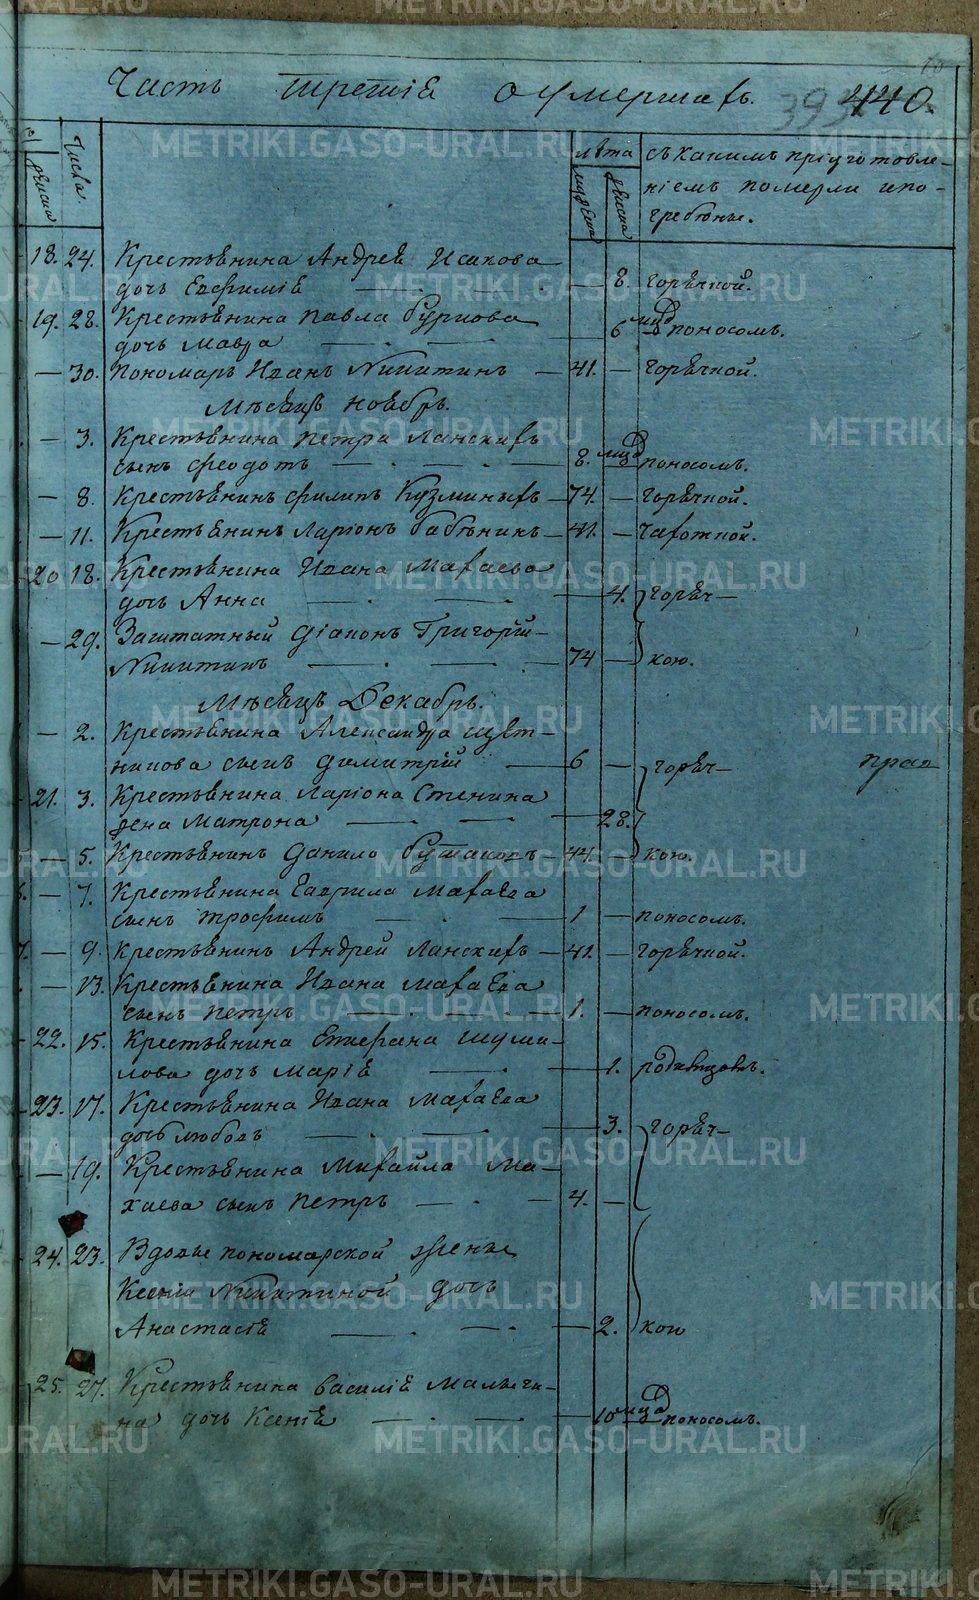 Часть третія о умершихъ. 393 440.
Числа. лѣта съ какимъ пріуготовле-
женска мужеска женска ніемъ померли и по-
гребены.
18. 24. Крестьянина Андрея Исакова
дочь Евфимія 8. горячкой.
19. 28. Крестьянина Павла Буркова
дочь Мавра 6 мцд поносомъ.
— 30. Пономарь Иванъ Никитинъ — 41. — горячкой.
Мѣсяцъ Ноябрь.
— 3. Крестьянина Петра Ланскихъ
сынъ Феодотъ 8. мцд поносомъ.
— 8. Крестьянинъ Филипъ Кузминыхъ — 74. — горячкой.
— 11. Крестьянинъ Ларіонъ Бабкинъ — 41. — чахоткой.
20 18. Крестьянина Ивана Махаева
дочь Анна 4. горяч—
— 29. Заштатный діаконъ Григорій
Никитинъ 74 — кою.
Мѣсяцъ Декабрь.
— 2. Крестьянина Александра Щет-
никова сынъ Димитрій 6 — горяч— прап
21. 3. Крестьянина Ларіона Стенина
жена Матрона 28.
— 5. Крестьянинъ Данило Бутаковъ — 44. — кою.
— 7. Крестьянина Гаврила Махаева
сынъ Трофимъ 1 — поносомъ.
— 9. Крестьянинъ Андрей Ланскихъ — 41. — горячкой.
— 13. Крестьянина Ивана Махаева
сынъ Петръ 1. — поносомъ.
22. 15. Крестьянина Епифана Шуми-
лова дочь Марія 1. родимцомъ.
23. 17. Крестьянина Ивана Махаева
дочь Любовь 3. горяч—
— 19. Крестьянина Михайла Ма-
хаева сынъ Петръ 4. —
24. 23. Вдовы пономарской жены
Ксеніи Никитиной дочь
Анастасія 2. кою
25. 27. Крестьянина Василія Малыги-
на дочь Ксенія 10 мцд поносомъ.
METRIKI.GASO-URAL.RU